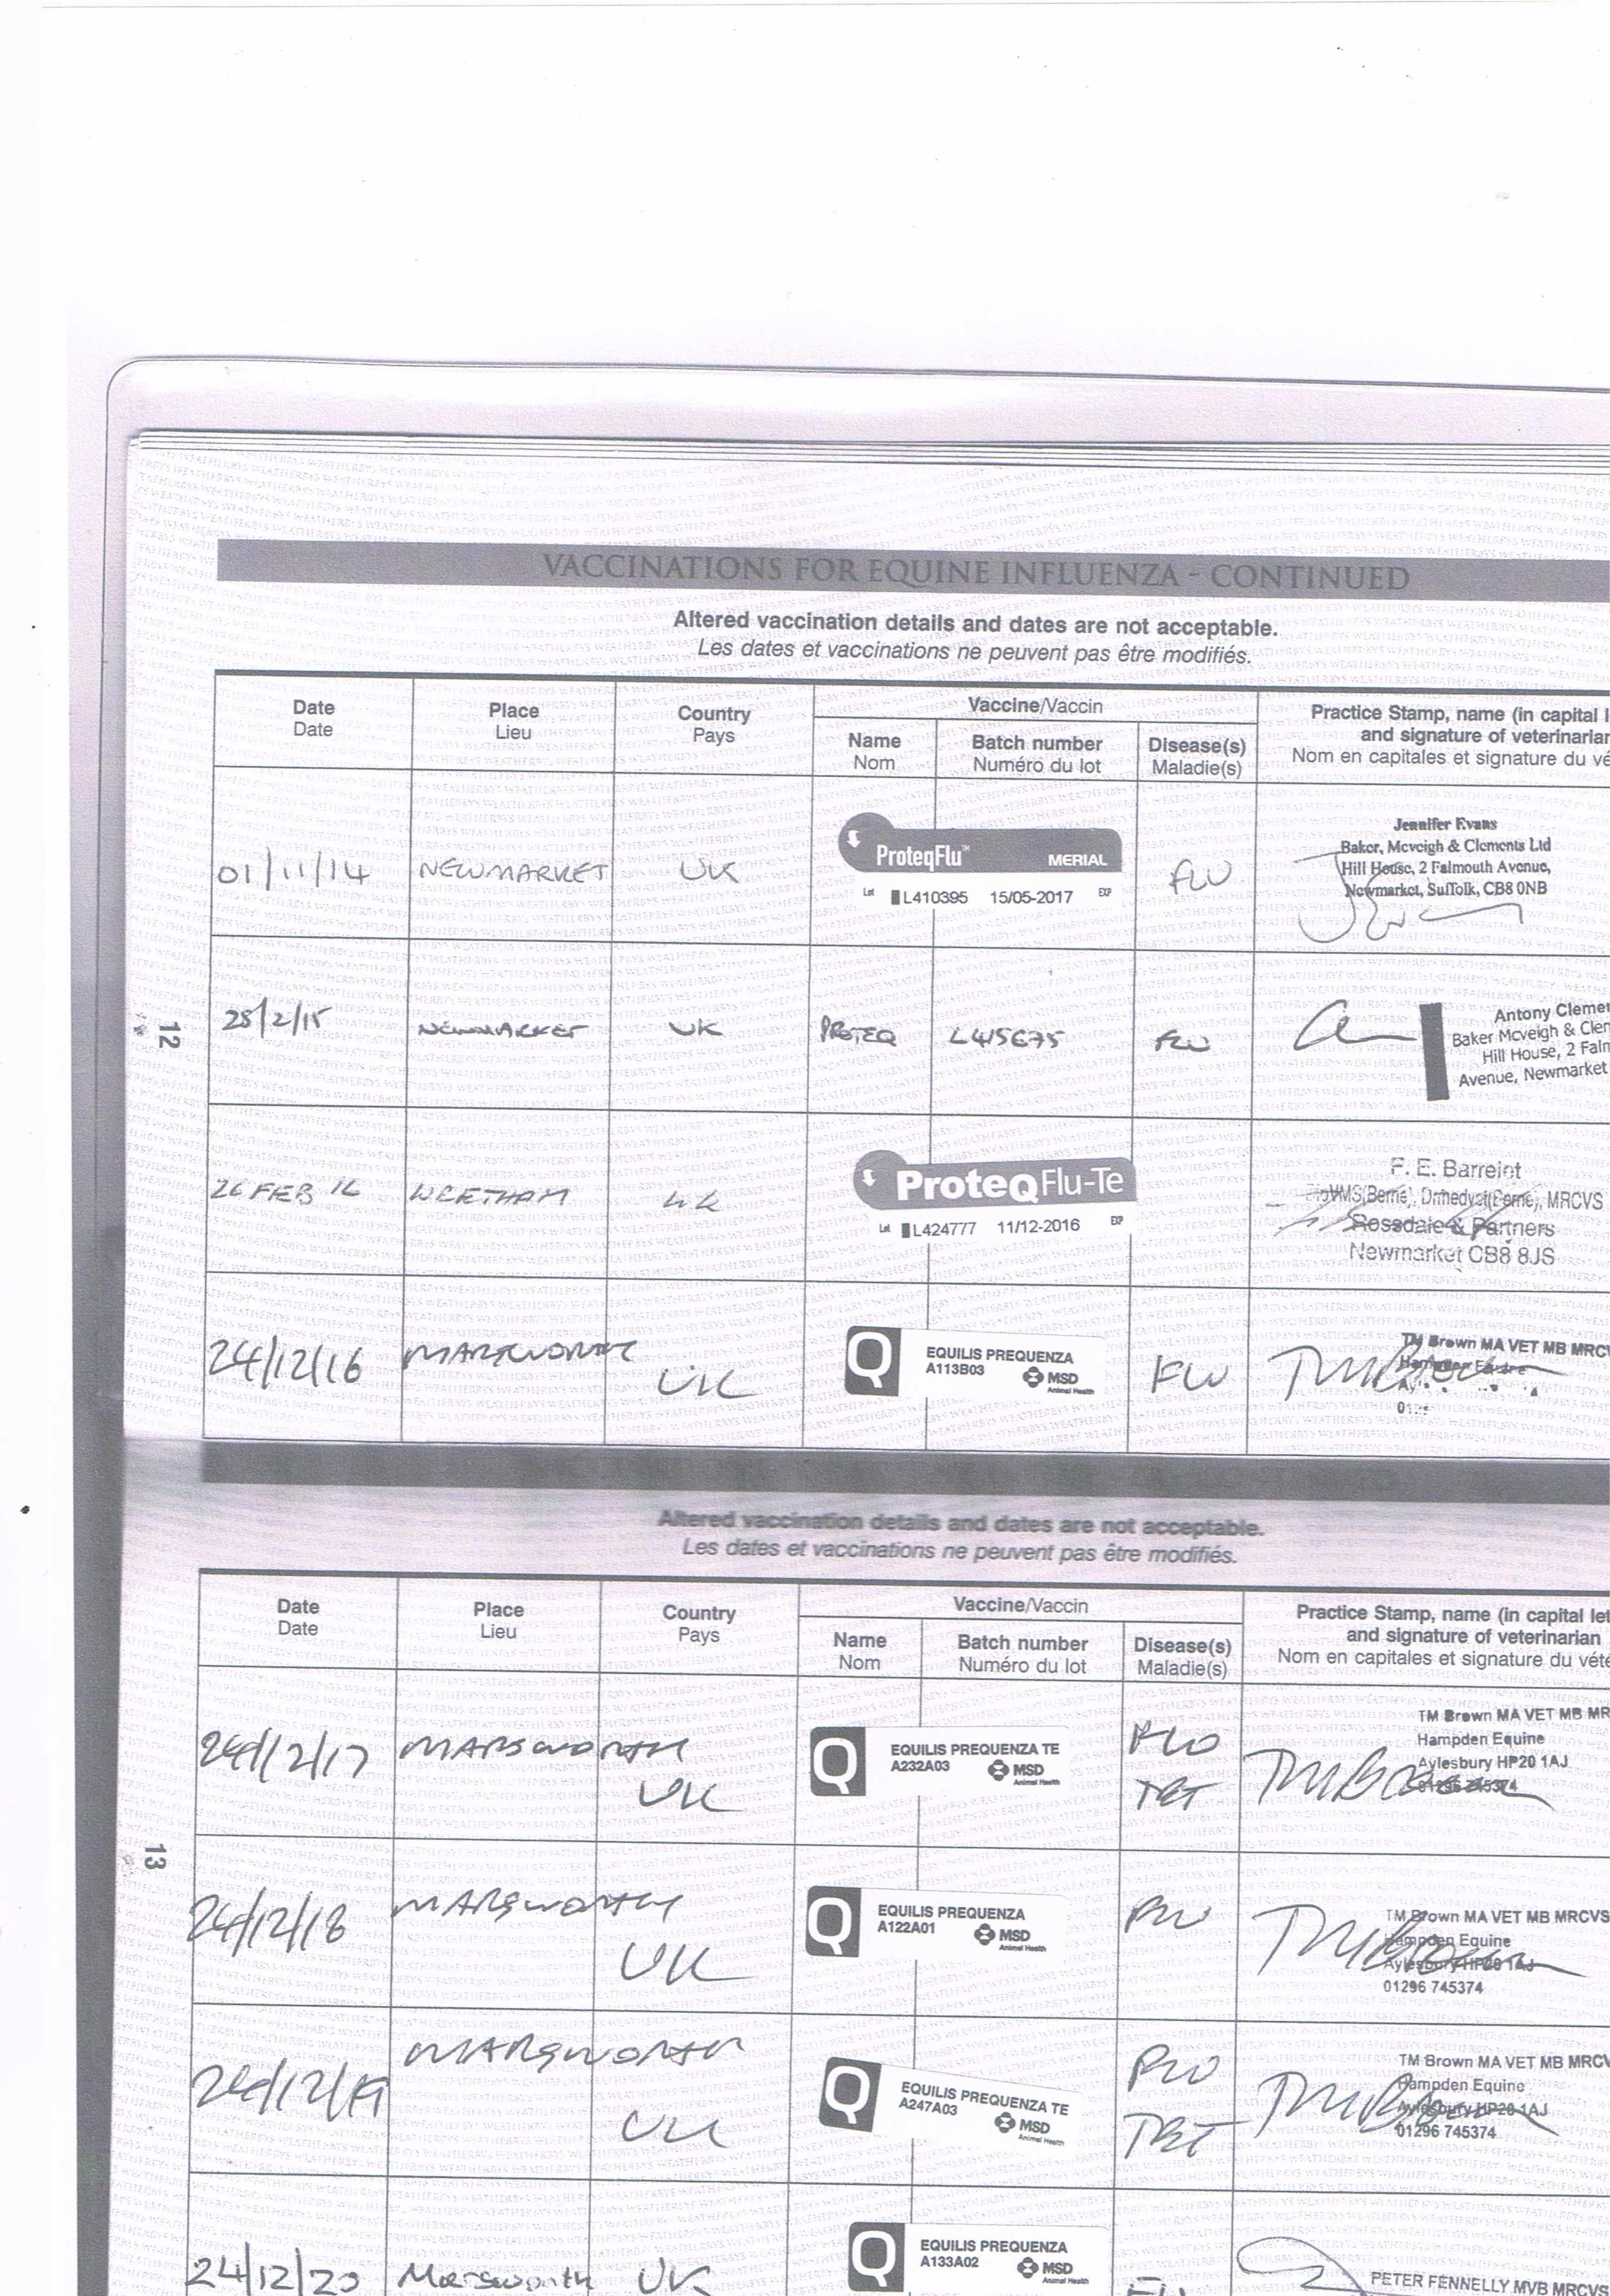 VACCINATIONS FOR EQUINE INFLUENZA - CONTINUED
Altered vaccination details and dates are not acceptable.
Les dates et vaccinations ne peuvent pas être modifiés.
Date
Date
Place
Lieu
Country
Pays
Vaccine/Vaccin
Name
Nom
Batch number
Numéro du lot
Disease(s)
Maladie(s)
Practice Stamp, name (in capital
and signature of veterinarian
Nom en capitales et signature du vé
01/11/14 NEWMARKET UK
ProteqFlu™ MERIAL
Lot L410395 15/05-2017 EXP
FLU
Jennifer Evans
Baker, Mcveigh & Clements Ltd
Hill House, 2 Falmouth Avenue,
Newmarket, Suffolk, CB8 0NB
12
28/2/15 NEWMARKET UK PROTEQ L415675 FLU
Antony Cleme
Baker Mcveigh & Clem
Hill House, 2 Faln
Avenue, Newmarket
26 FEB 16 UK
ProteqFlu-Te
Lot L424777 11/12-2016 EXP
F. E. Barrelet
MRCVS
Rossdale & Partners
Newmarket CB8 8JS
24/12/16 MARSWORTH UK
Q EQUILIS PREQUENZA
A113B03 MSD
Animal Health
FLU
TM Brown MA VET MB MRCV
Hampden Equine
Altered vaccination details and dates are not acceptable.
Les dates et vaccinations ne peuvent pas être modifiés.
Date
Date
Place
Lieu
Country
Pays
Vaccine/Vaccin
Name
Nom
Batch number
Numéro du lot
Disease(s)
Maladie(s)
Practice Stamp, name (in capital let
and signature of veterinarian
Nom en capitales et signature du vété
24/12/17 MARSWORTH
UK
Q EQUILIS PREQUENZA TE
A232A03 MSD
Animal Health
FLU
TET
TM Brown MA VET MB MR
Hampden Equine
Aylesbury HP20 1AJ
01296 745374
13
24/12/18 MARSWORTH
UK
Q EQUILIS PREQUENZA
A122A01 MSD
Animal Health
FLU
TM Brown MA VET MB MRCVS
Hampden Equine
Aylesbury HP20 1AJ
01296 745374
24/12/19 MARSWORTH
UK
Q EQUILIS PREQUENZA TE
A247A03 MSD
Animal Health
FLU
TET
TM Brown MA VET MB MRCV
Hampden Equine
Aylesbury HP20 1AJ
01296 745374
24/12/20 Marsworth UK
Q EQUILIS PREQUENZA
A133A02 MSD
Animal Health
PETER FENNELLY MVB MRCVS